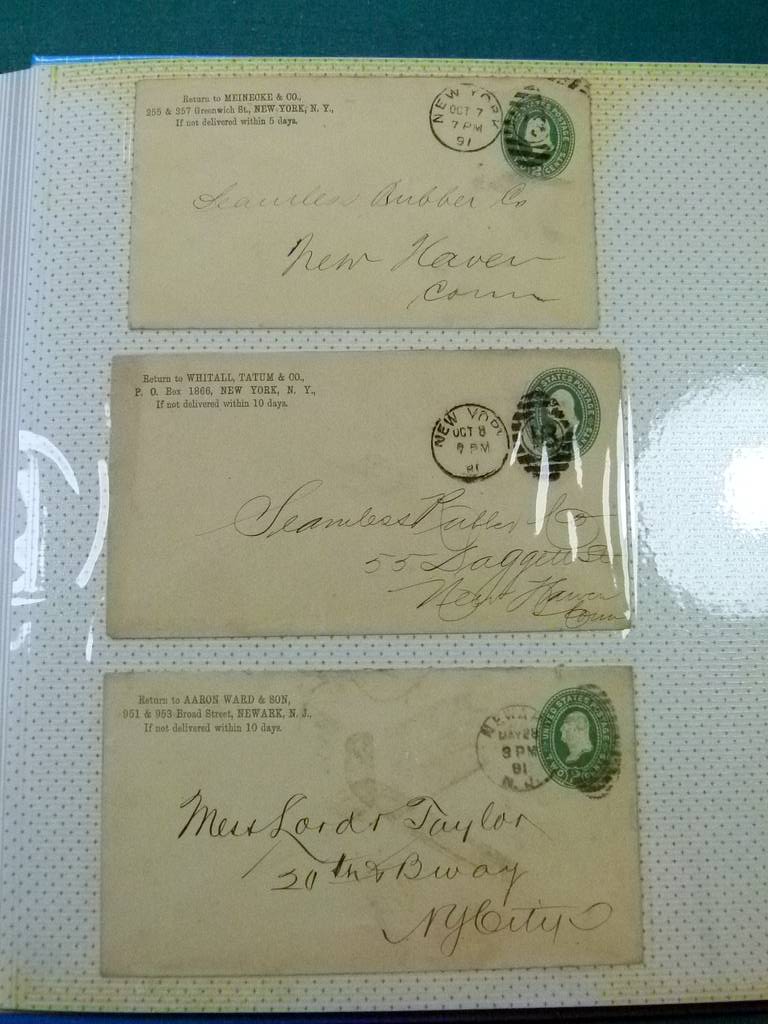 Return to MEINECKE & CO.,
255 & 257 Greenwich St., NEW YORK, N. Y.,
If not delivered within 5 days.
NEW YORK
OCT 7
7 PM
91
POSTAGE
2 CENTS
Seamless Rubber Co
New Haven
Conn
Return to WHITALL, TATUM & CO.,
P. O. Box 1866, NEW YORK, N. Y.,
If not delivered within 10 days.
NEW YORK
OCT 8
7 PM
91
STATES POSTAGE
Seamless Rubber Co
55 Daggett St
New Haven
Conn
Return to AARON WARD & SON,
951 & 953 Broad Street, NEWARK, N. J.,
If not delivered within 10 days.
NEWARK
MAY 28
3 PM
91
N.J.
UNITED STATES POSTAGE
Mess Lord & Taylor
20th & Bway
NY City